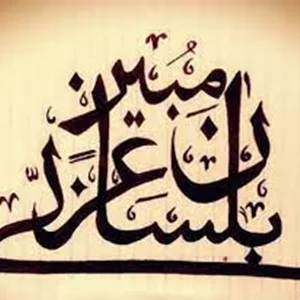 بلسان عربي مبين